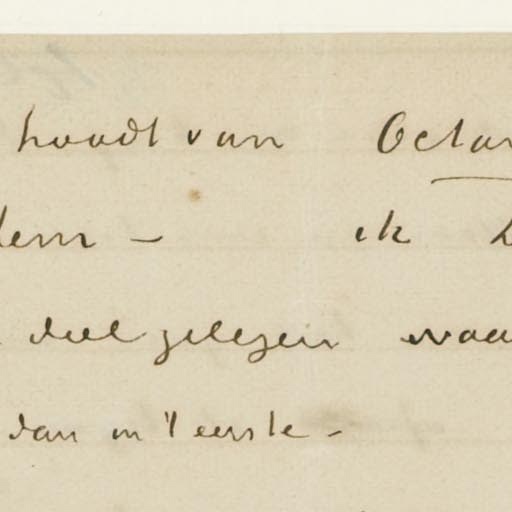 hoodt van Octav
dem – ik
deel gelezen waa
dan in 't eerste –